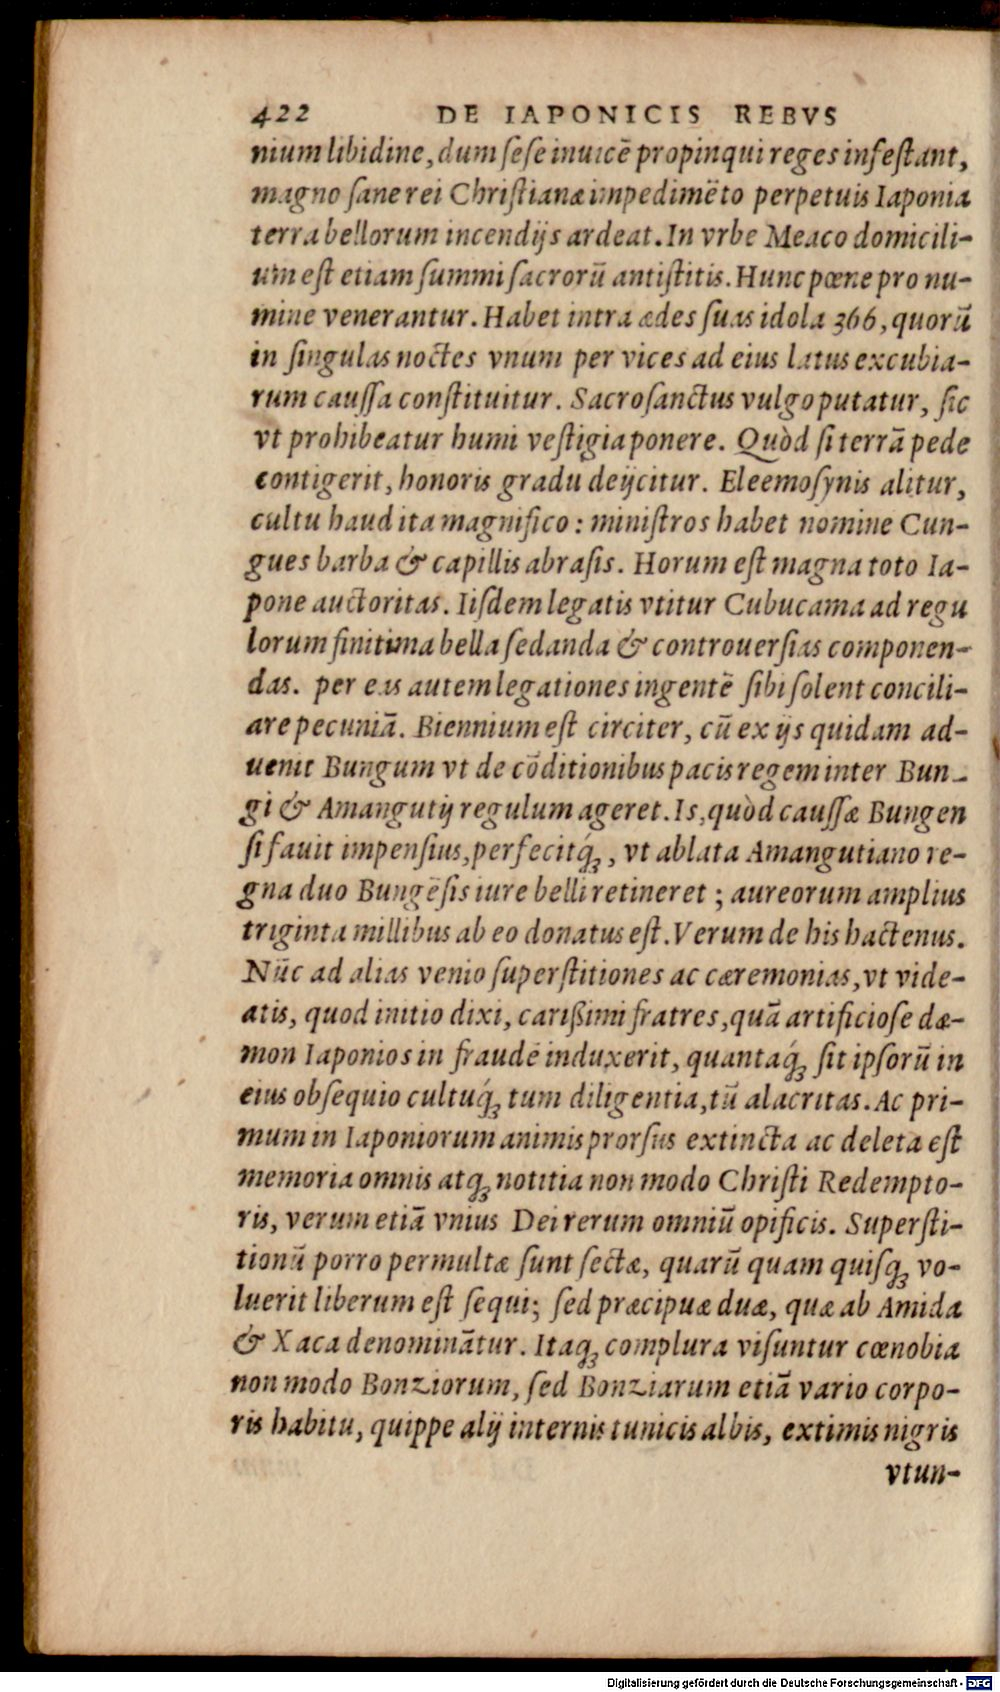 422 DE IAPONICIS REBVS
nium libidine, dum ſeſe inuicē propinqui reges infeſtant,
magno ſane rei Chriſtianæ impedimēto perpetuis Iaponia
terra bellorum incendijs ardeat. In vrbe Meaco domicili-
um eſt etiam ſummi ſacrorū antiſtitis. Hunc pœne pro nu-
mine venerantur. Habet intra ædes ſuas idola 366, quorū
in ſingulas noctes vnum per vices ad eius latus excubia-
rum cauſſa conſtituitur. Sacroſanctus vulgo putatur, ſic
vt prohibeatur humi veſtigia ponere. Quòd ſi terrā pede
contigerit, honoris gradu deijcitur. Eleemoſynis alitur,
cultu haud ita magnifico: miniſtros habet nomine Cun-
gues barba & capillis abraſis. Horum eſt magna toto Ia-
pone auctoritas. Iiſdem legatis vtitur Cubucama ad regu
lorum finitima bella ſedanda & controuerſias componen-
das. per eas autem legationes ingentē ſibi ſolent concili-
are pecuniā. Biennium eſt circiter, cū ex ijs quidam ad-
uenit Bungum vt de cōditionibus pacis regem inter Bun-
gi & Amangutij regulum ageret. Is, quòd cauſſæ Bungen
ſi fauit impenſius, perfecitq́ꝫ, vt ablata Amangutiano re-
gna duo Bungēſis iure belli retineret; aureorum amplius
triginta millibus ab eo donatus eſt. Verum de his hactenus.
Nūc ad alias venio ſuperſtitiones ac cæremonias, vt vide-
atis, quod initio dixi, carißimi fratres, quā artificioſe dæ-
mon Iaponios in fraudē induxerit, quantaq́ꝫ ſit ipſorū in
eius obſequio cultuq́ꝫ tum diligentia, tū alacritas. Ac pri-
mum in Iaponiorum animis prorſus extincta ac deleta eſt
memoria omnis atqꝫ notitia non modo Chriſti Redempto-
ris, verum etiā vnius Dei rerum omniū opificis. Superſti-
tionū porro permultæ ſunt ſectæ, quarū quam quiſqꝫ vo-
luerit liberum eſt ſequi; ſed præcipuæ duæ, quæ ab Amida
& Xaca denominātur. Itaqꝫ complura viſuntur cœnobia
non modo Bonziorum, ſed Bonziarum etiā vario corpo-
ris habitu, quippe alij internis tunicis albis, extimis nigris
vtun-
Digitalisierung gefördert durch die Deutsche Forschungsgemeinschaft - DFG